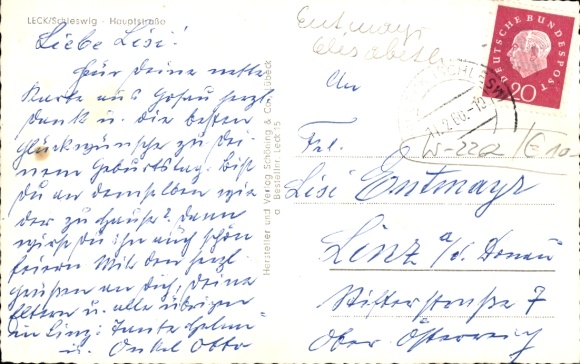 LECK/Schleswig - Hauptstraße
Liebe Lisi!
Für Deine nette
Karte aus Gosau herzl.
Dank u. die besten
Glückwünsche zu Dei-
nem Geburtstag. Bist
Du an demselben wie
der zu Hause? Dann
wirst Du ihn auch schön
feiern. Mit den herzl.
Grüßen an Dich, Deine
Eltern u. alle übrigen
in Linz: Tante Helene
u. Onkel Otto
Hersteller und Verlag Schöning & Co., Lübeck
Bestellnr. Leck 5
Entmayr
Elisabeth
DEUTSCHE BUNDESPOST
20
W-22a
€ 10-
An
Frl.
Lisi Entmayr
Linz a/d. Donau
Stifterstraße 7
Ober Österreich